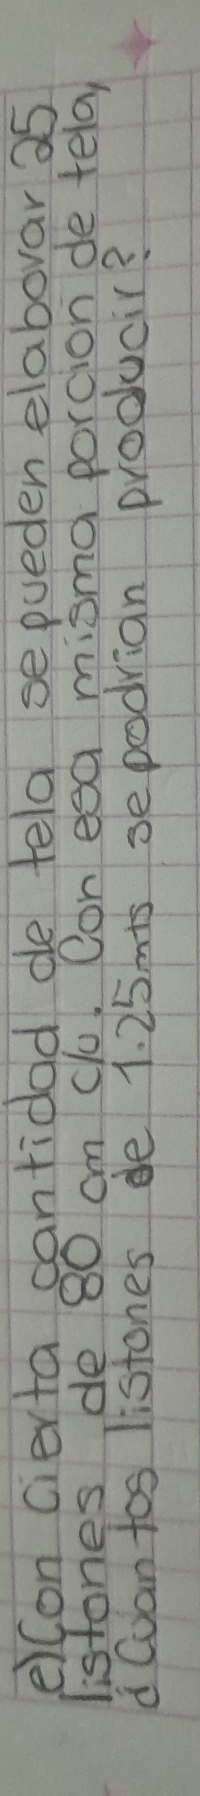 e) Con cierta cantidad de tela se pueden elaborar 25
listones de 80 cm c/u. Con esa misma porcion de tela,
¿Cuantos listones de 1.25mts se podrian producir?